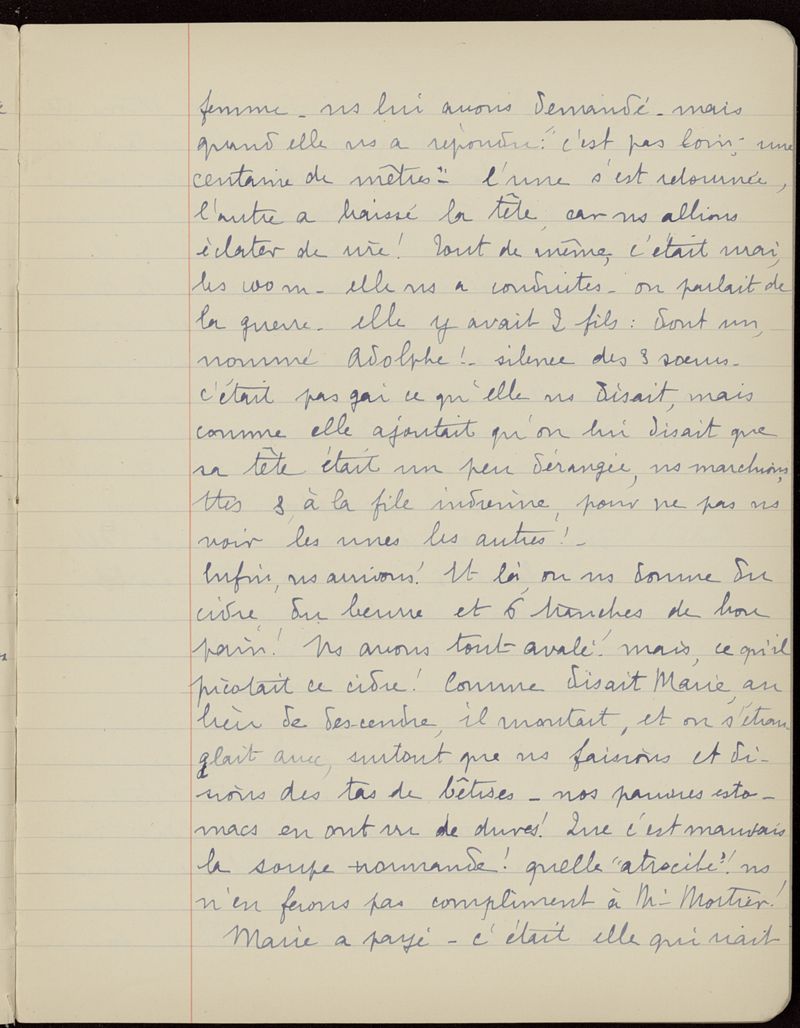 femme - ns lui avons demandé - mais
quand elle ns a répondu : "c'est pas loin ; une
centaine de mètres" - l'une s'est retournée,
l'autre a baissé la tête, car ns allions
éclater de rire ! Tout de même, c'était vrai,
les 100 m - elle ns a conduites - on parlait de
la guerre - elle y avait 2 fils : dont un,
nommé Adolphe ! - silence des 3 sœurs -
c'était pas gai ce qu'elle ns disait, mais
comme elle ajoutait qu'on lui disait que
sa tête était un peu dérangée, ns marchions,
ttes 3, à la file indienne, pour ne pas ns
voir les unes les autres ! -
Enfin, ns arrivons ! Et là, on ns donne du
cidre, du beurre et 6 tranches de bon
pain ! Ns avons tout avalé ! mais, ce qu'il
picotait ce cidre ! Comme disait Marie, au
lieu de descendre, il montait, et on s'étran
glait avec, surtout que ns faisions et di-
sions des tas de bêtises - nos pauvres esto-
macs en ont vu de dures ! Que c'est mauvais
la soupe normande ! quelle "atrocité" ! ns
n'en ferons pas compliment à Mr Mortier !
Marie a payé - c'était elle qui riait